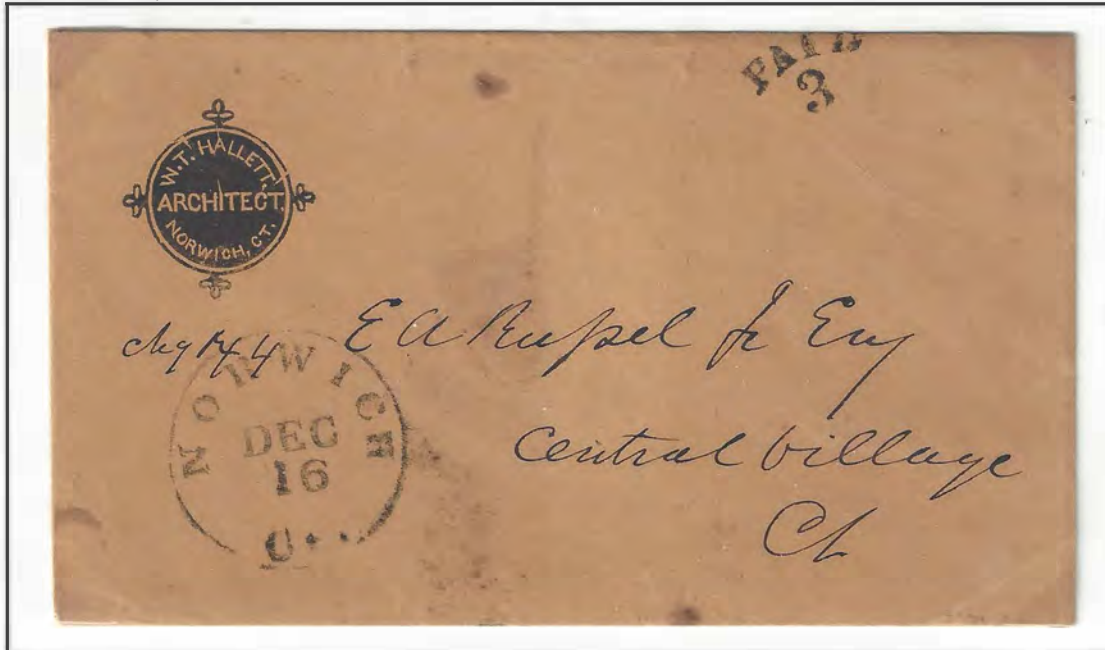 PAID
3
W.T. HALLETT.
ARCHITECT.
NORWICH, CT.
chg 144
E A Russel Jr Esq
Central Village
Ct
NORWICH
DEC
16